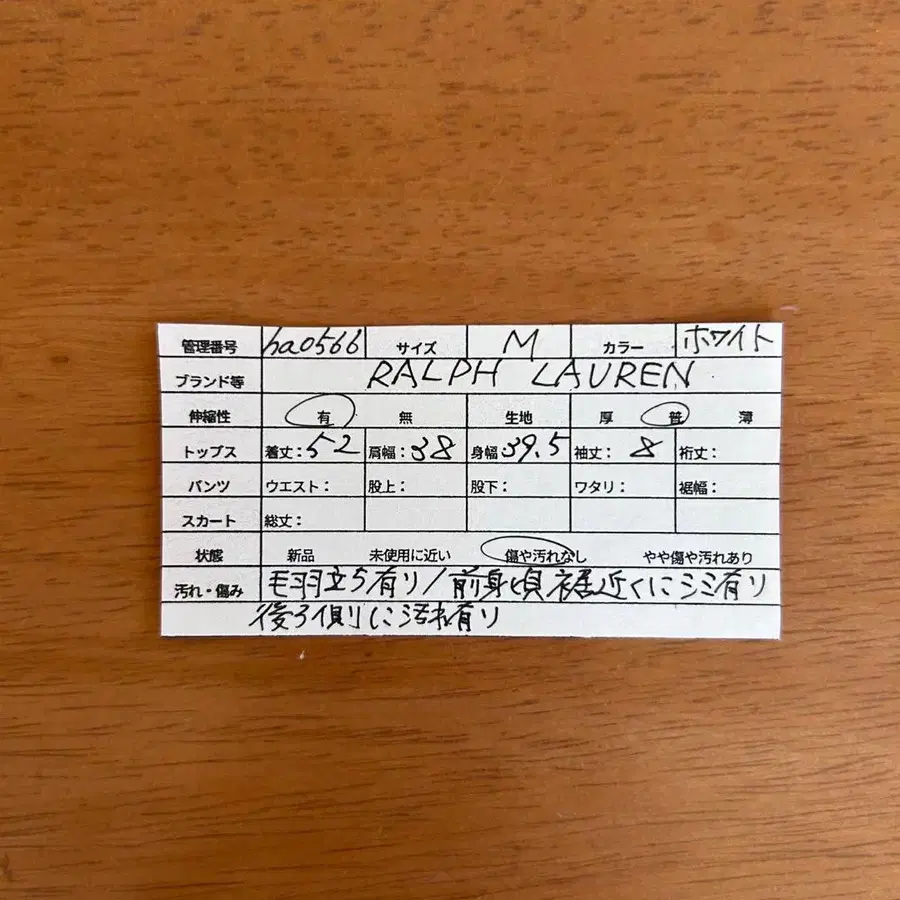 管理番号 ha0566 サイズ M カラー ホワイト
ブランド等 RALPH LAUREN
伸縮性 有 無 生地 厚 普 薄
トップス 着丈：52 肩幅：38 身幅：39.5 袖丈：8 裄丈：
パンツ ウエスト： 股上： 股下： ワタリ： 裾幅：
スカート 総丈：
状態 新品 未使用に近い 傷や汚れなし やや傷や汚れあり
汚れ・傷み 毛羽立ち有り/前身頃裾近くにシミ有り
後ろ側に汚れ有り